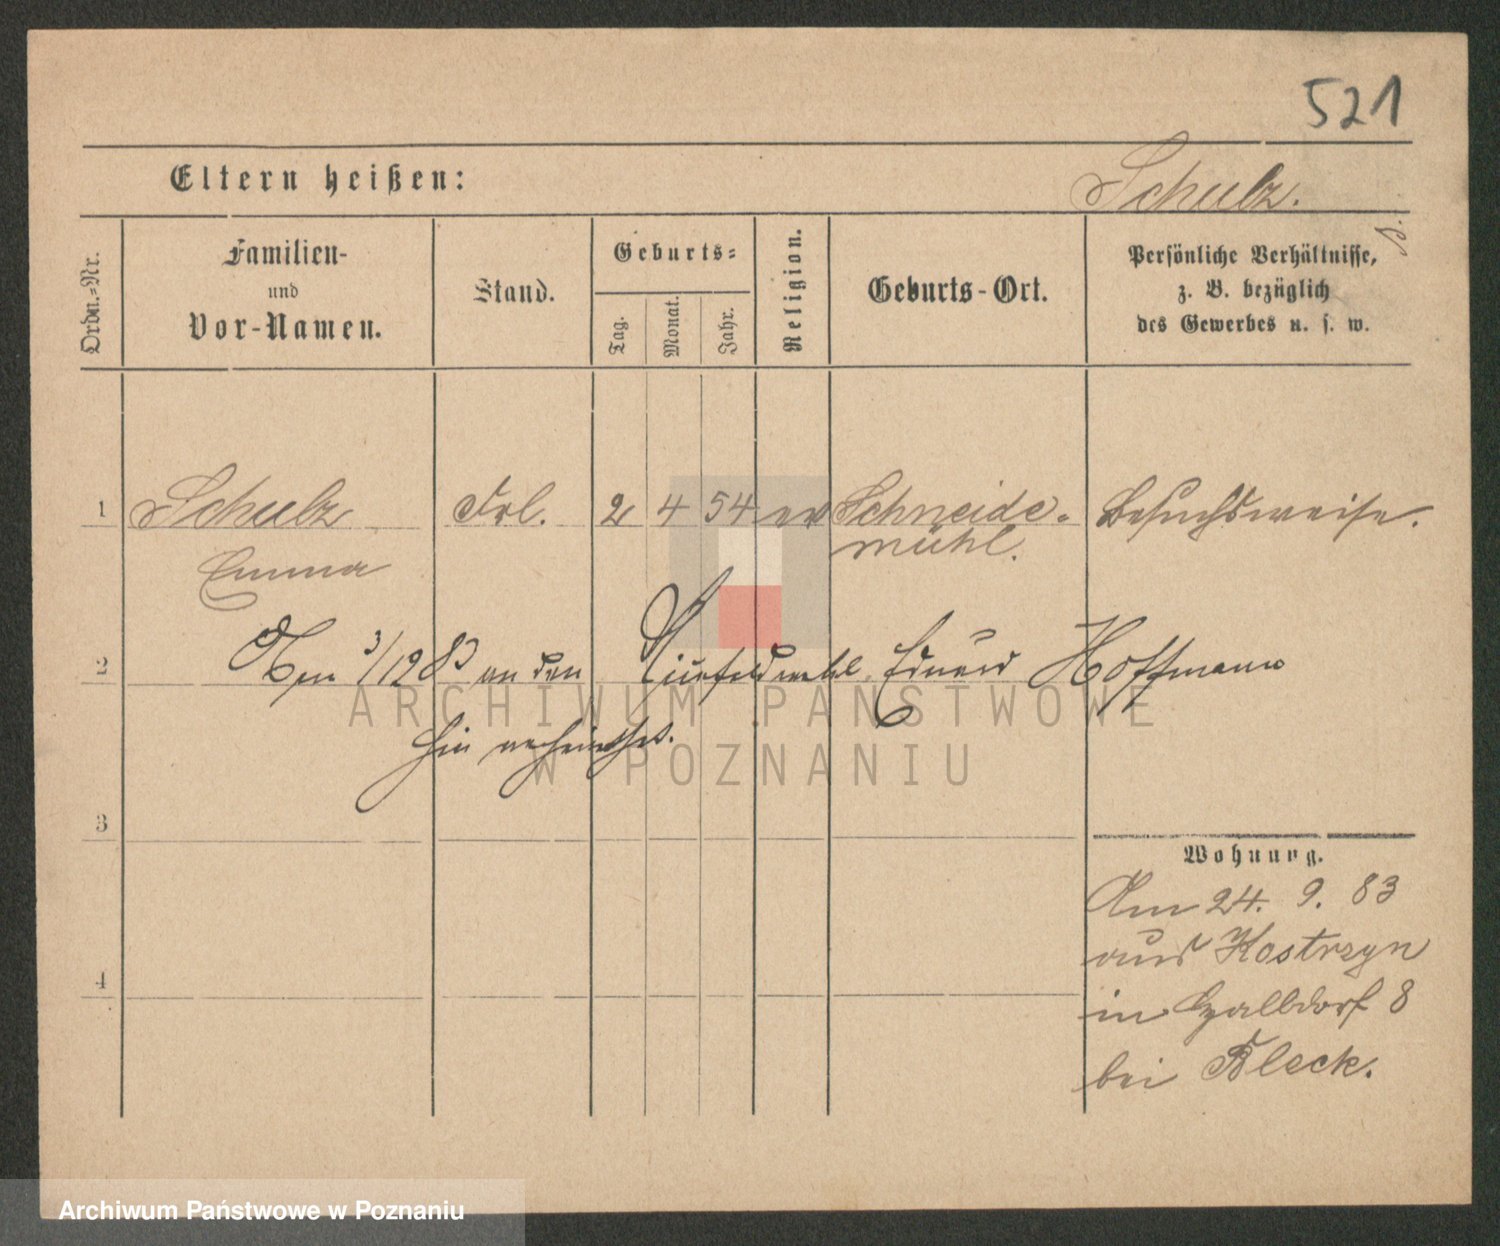 521
Schulz.
Eltern heißen:
Ordn.-Nr.
Familien-
und
Vor-Namen.
Stand.
Geburts-
Tag.
Monat.
Jahr.
Religion.
Geburts-Ort.
Persönliche Verhältnisse,
z. B. bezüglich
des Gewerbes u. s. w.
1 Schulz Frl. 2 4 54 ev Schneide- Besuchsweise.
Emma mühl.
2 Am 3/12 83 an den Eduard Hoffmann
hier verheirathet.
3
Wohnung.
Am 24. 9. 83
aus Kostrzyn
4
in 8
bei Bleck.
ARCHIWUM PAŃSTWOWE
W POZNANIU
Archiwum Państwowe w Poznaniu